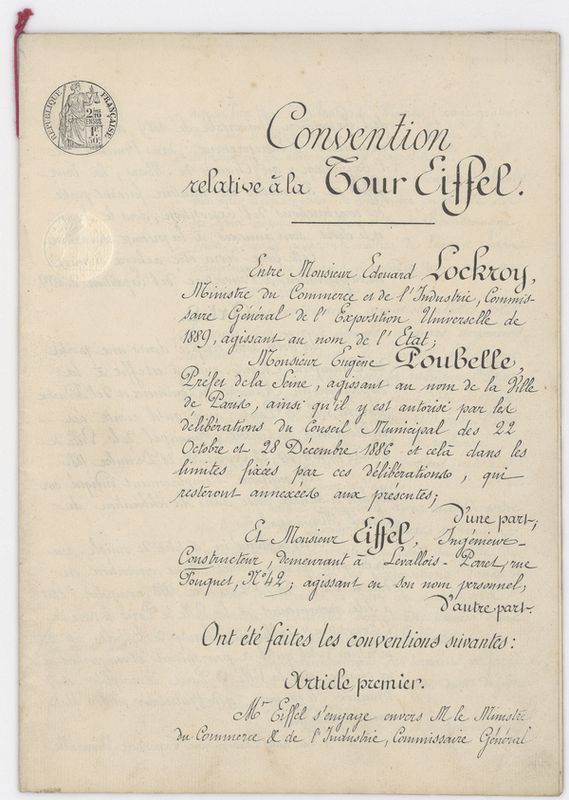 RÉPUBLIQUE FRANÇAISE
2/10
EN SUS
1F
50c
Convention
relative à la Tour Eiffel.
Entre Monsieur Edouard Lockroy,
Ministre du Commerce et de l'Industrie, Commis-
saire Général de l'Exposition Universelle de
1889, agissant au nom de l'Etat;
Monsieur Eugène Poubelle,
Préfet de la Seine, agissant au nom de la Ville
de Paris, ainsi qu'il y est autorisé par les
délibérations du Conseil Municipal des 22
Octobre et 28 Décembre 1886 et celà dans les
limites fixées par ces délibérations, qui
resteront annexées aux présentes;
D'une part;
Et Monsieur Eiffel, Ingénieur-
Constructeur, demeurant à Levallois-Perret, rue
Fouquet, N° 42; agissant en son nom personnel;
D'autre part.
Ont été faites les conventions suivantes:
Article premier.
Mr Eiffel s'engage envers M le Ministre
du Commerce & de l'Industrie, Commissaire Général